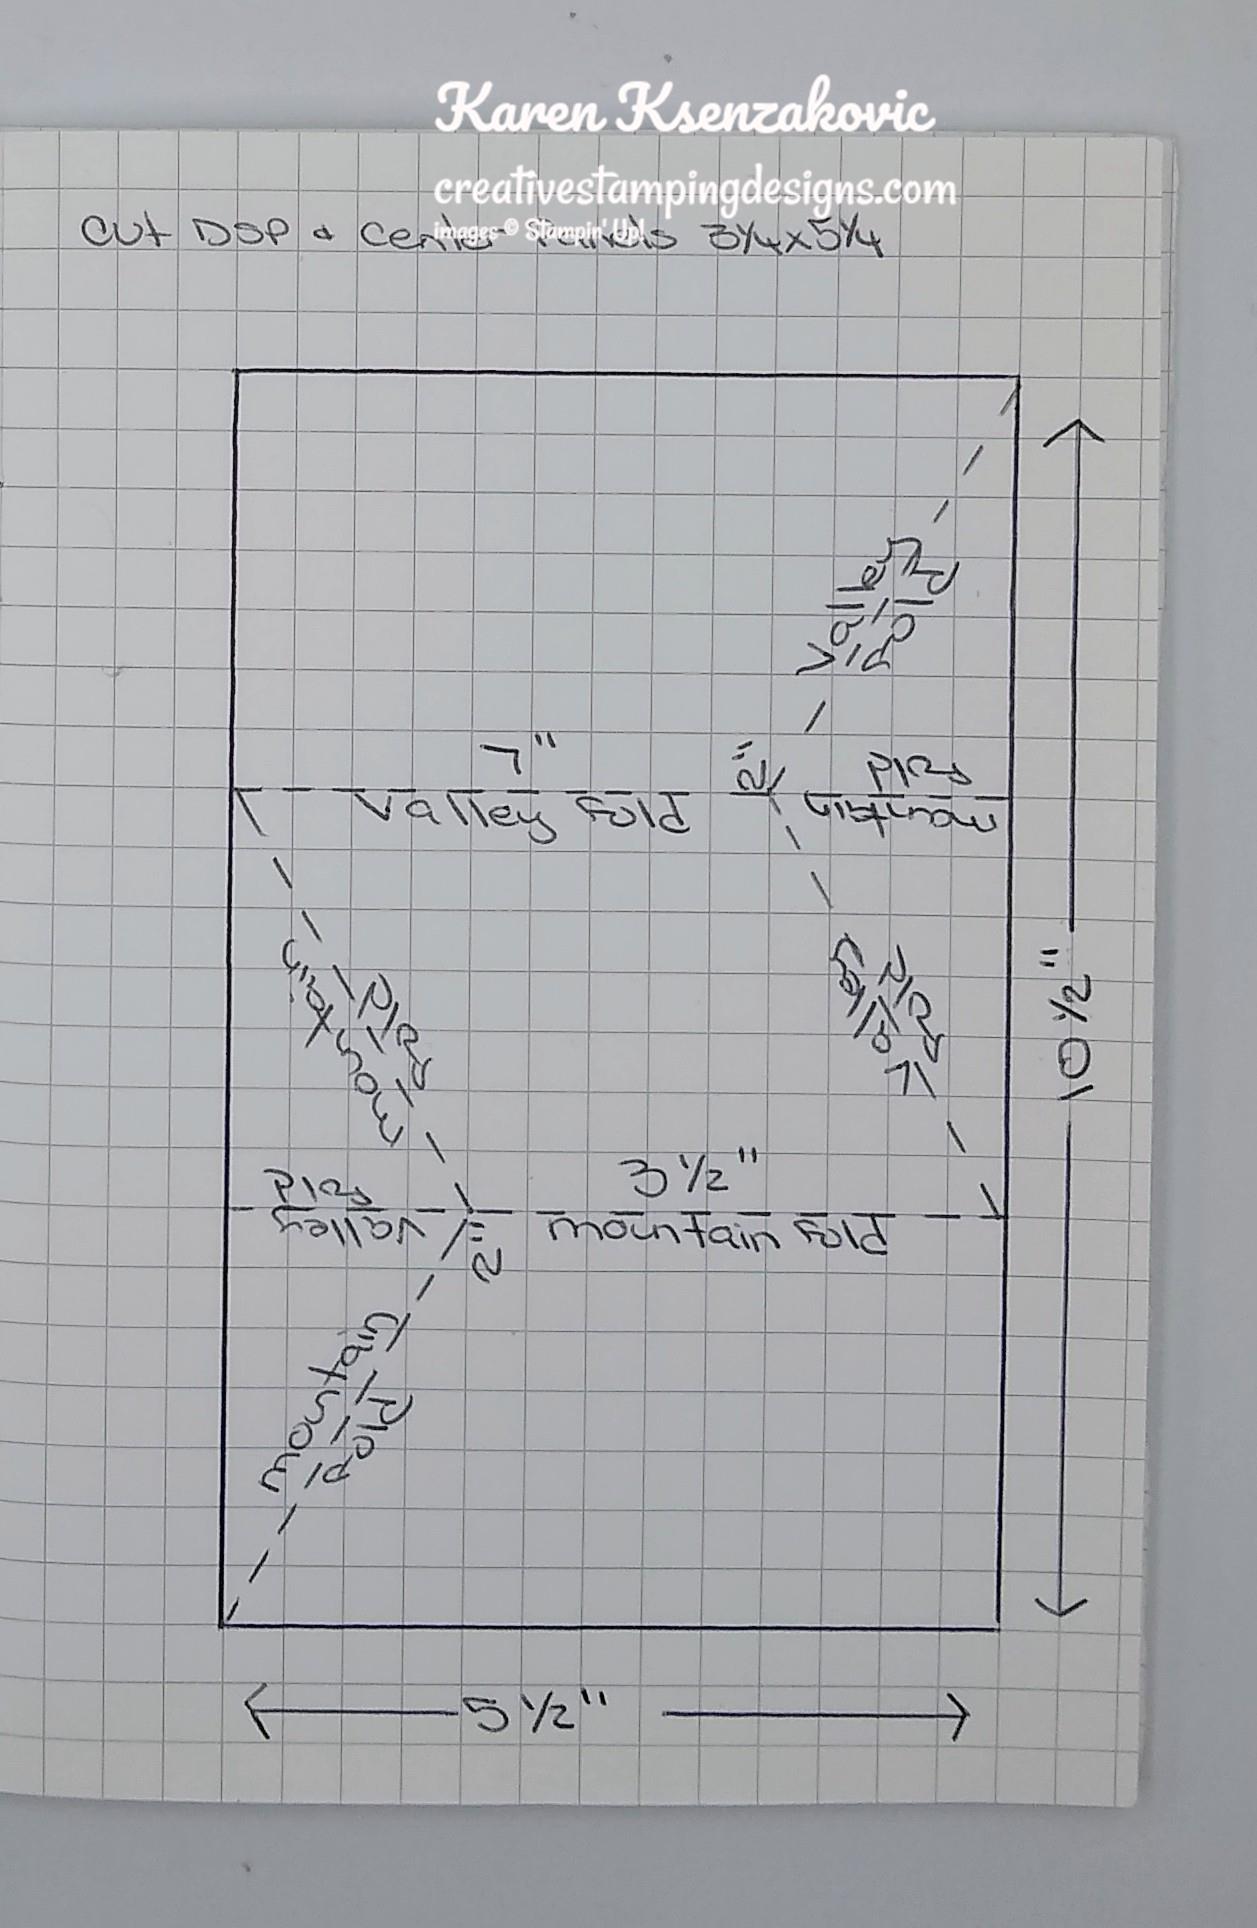 Karen Ksenzakovic
creativestampingdesigns.com
images © Stampin' Up!
Cut DSP & Center Panels 3¼x5¼
valley
fold
7"
2"
fold
valley fold
mountain
mountain
fold
valley
fold
10 ½"
fold
valley
3 ½"
mountain fold
2"
mountain
fold
5 ½"